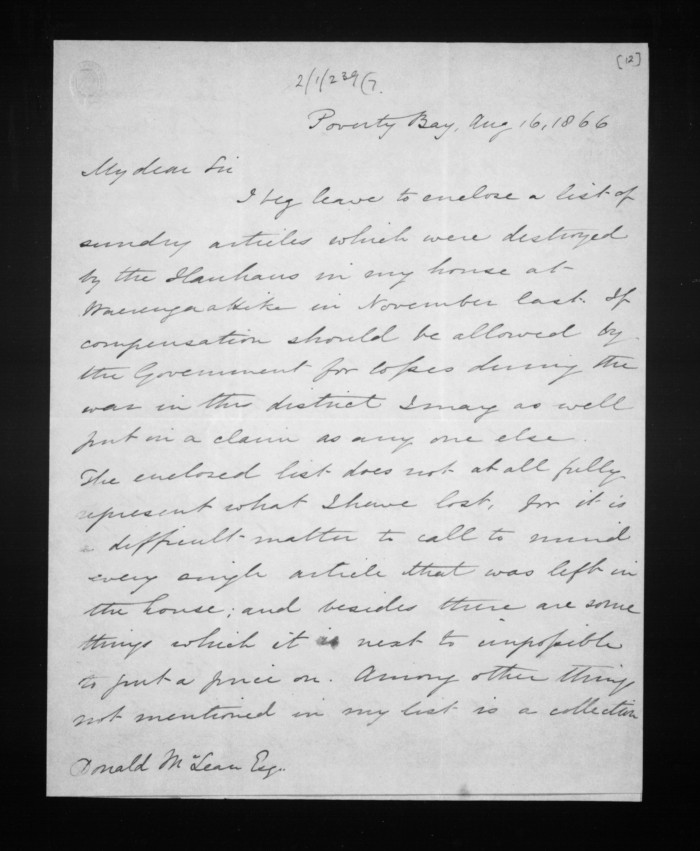 [12]
2/1/239/7.
Poverty Bay, Aug 16, 1866
My dear Sir
I beg leave to enclose a list of
sundry articles which were destroyed
by the Hauhaus in my house at
Waerengaahika in November last. If
compensation should be allowed by
the Government for losses during the
war in this district I may as well
put in a claim as any one else.
The enclosed list does not at all fully
represent what I have lost, for it is
a difficult matter to call to mind
every single article that was left in
the house; and besides there are some
things which it is next to impossible
to put a price on. Among other things
not mentioned in my list is a collection
Donald McLean Esq.